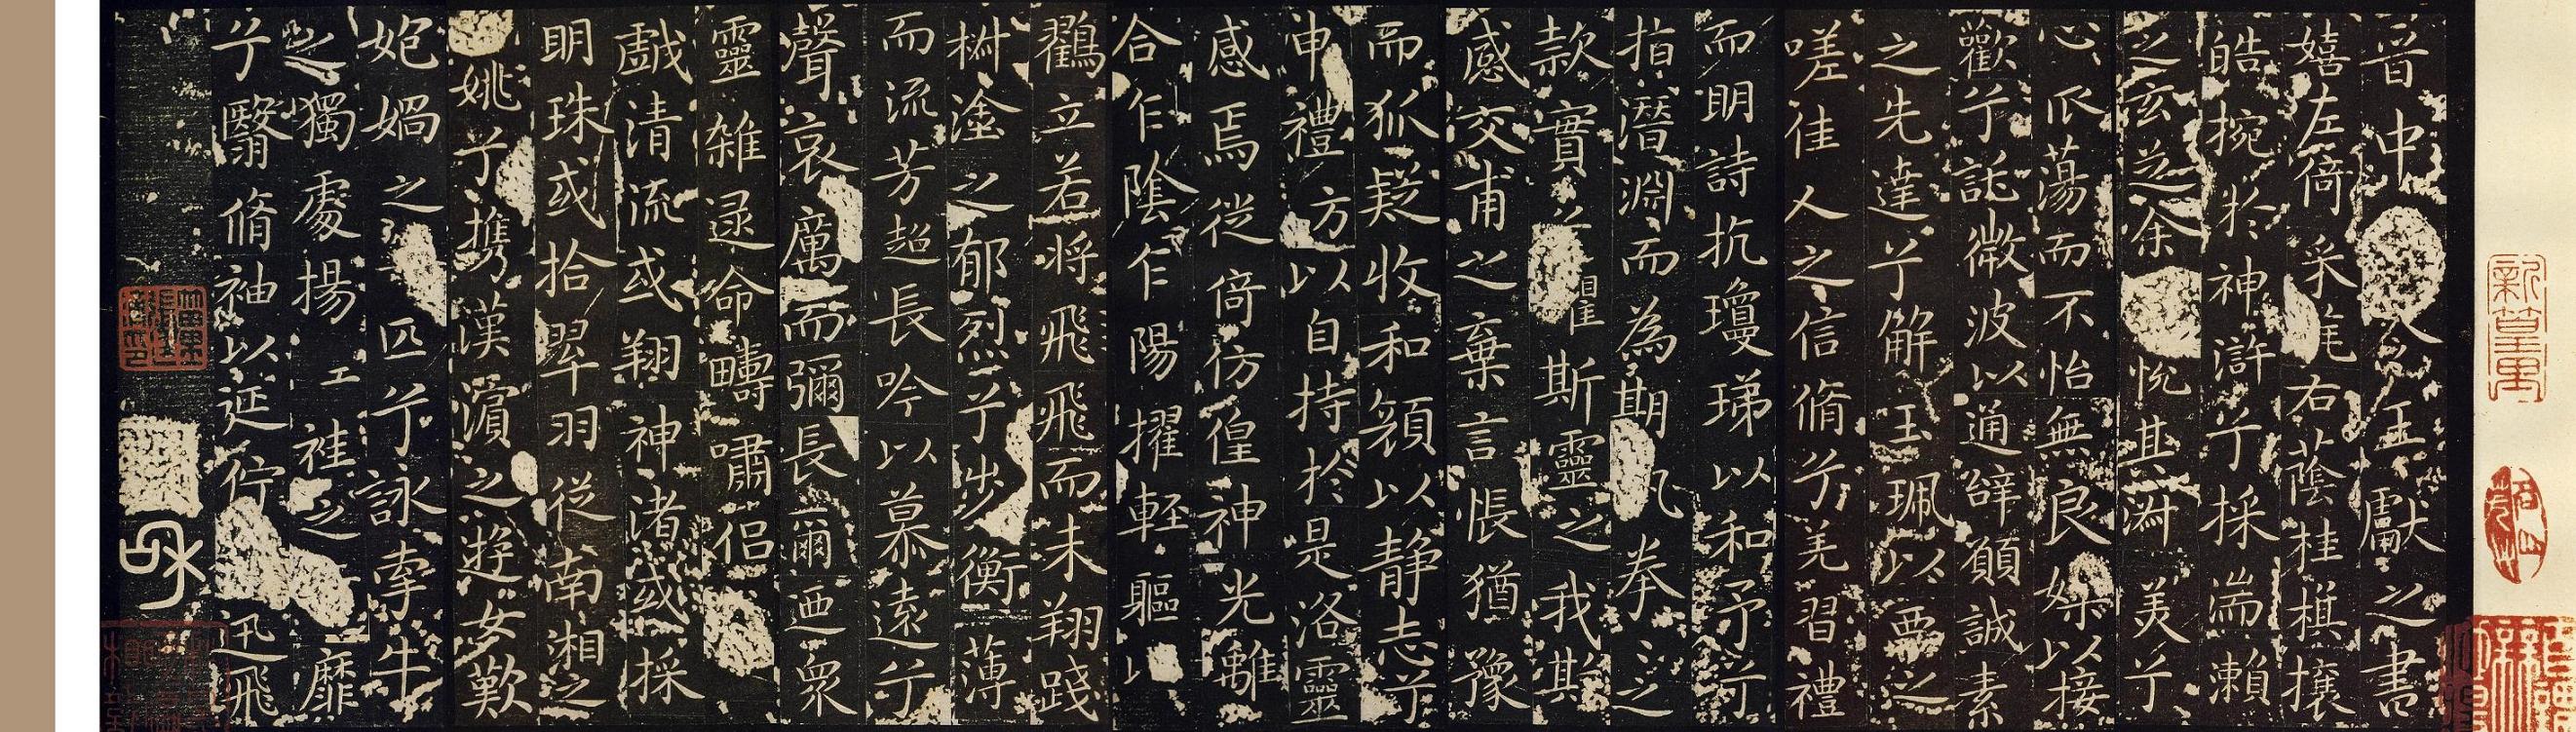 晉中令王獻之書
嬉左倚采旄右蔭桂棋攘
皓捥於神滸兮採湍瀨
之玄芝余悅其淋美兮
心爪蕩而不怡無良媒以接
歡兮託微波以通辞願誠素
之先達兮解玉珮以要之
嗟佳人之信脩兮羌習禮
而明詩抗瓊珶以和予兮
指潛淵而為期拳之
款實兮懼斯靈之我欺
感交甫之棄言悵猶豫
而狐疑收和顏以静志兮
申禮方以自持於是洛靈
感焉徙倚彷徨神光離
合乍陰乍陽擢輕軀以
鸛立若將飛飛而未翔踐
樹塗之郁烈兮步衡薄
而流芳超長吟以慕遠兮
聲哀厲而彌長爾迺眾
靈雜遝命疇嘯侶
戲清流或翔神渚或採
明珠或拾翠羽從南湘之
姚兮攜漢濱之遊女歎
匏媧之匹兮詠牽牛
之獨處揚袿之靡
兮翳脩袖以延佇迅飛